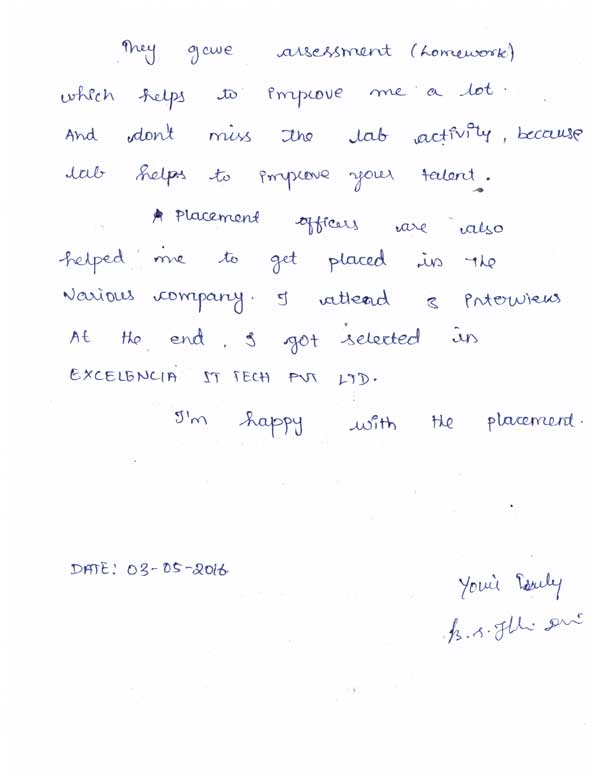 They gave assessment (homework)
which helps to improve me a lot.
And don't miss the lab activity, because
lab helps to improve your talent.
Placement officers are also
helped me to get placed in the
Various company. I attend 3 Interviews
At the end, I got selected in
EXCELENCIA IT TECH PVT LTD.
I'm happy with the placement.
DATE: 03-05-2016
Your's Truly